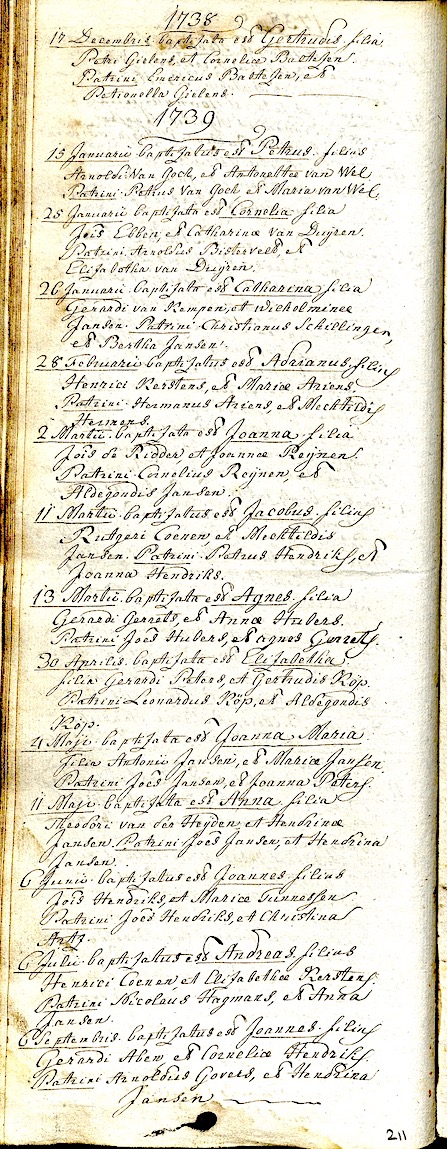 1738
17 Decembris baptisata est Gertrudis filia
Petri Gielens, et Cornelia Bastesen
Patrini Emericus Bastesen, et
Petronella Gielens.
1739
15 Januarii baptisatus est Petrus filius
Arnoldi Van Goch, et Antonettee van Wel
Patrini Petrus Van Goch et Maria van Wel.
25 Januarii baptisata est Cornelia filia
Jois Ebben, et Catharinæ van Duijren.
Patrini Arnoldus Bisterveld, et
Elisabetha van Duijren.
26 Januarii baptisata est Catharina filia
Gerardi van Kempen, et Wilhelminee
Jansen. Patrini Christianus Schillingen,
et Bertha Jansen.
28 Februarii baptisatus est Adrianus filius
Henrici Kerstens, et Mariæ Ariens
Patrini Hermanus Ariens et Mechtildis
Hermens.
2 Martii baptisata est Joanna filia
Jois de Ridder et Joannæ Reijnen.
Patrini Cornelius Reijnen, et
Aldegondis Jansen.
11 Martii baptisatus est Jacobus filius
Rutgeri Coenen, et Mechtildis
Jansen. Patrini Petrus Hendriks, et
Joanna Hendriks.
13 Martii baptisata est Agnes filia
Gerardi Gerrets, et Annæ Hubers.
Patrini Joes Hubers, et agnes Gerrets.
30 Aprilis baptisata est Elisabetha
filia Gerardi Peters, et Gertrudis Kop.
Patrini Leonardus Kop, et Aldegondis
Kop.
4 Maji baptisata est Joanna Maria
Filia Antonii Jansen, et Mariæ Jansen.
Patrini Joes Jansen, et Joanna Peters.
11 Maji baptisata est Anna filia
Theodori van der Heyden, et Hendrinæ
Jansen. Patrini Joes Jansen, et Hendrina
Jansen.
6 Junii baptisatus est Joannes filius
Jois Hendriks, et Mariæ Tunnessen
Patrini Joes Hendriks, et Christina
6 Julii baptisatus est Andreas filius
Henrici Coenen, et Elisabethæ Kerstens.
Patrini Nicolaus Hagmans, et Anna
Jansen.
6 Septembris baptisatus est Joannes filius
Gerardi Aben, et Corneliæ Hendriks.
Patrini Arnoldus Govers, et Hendrina
Jansen
211